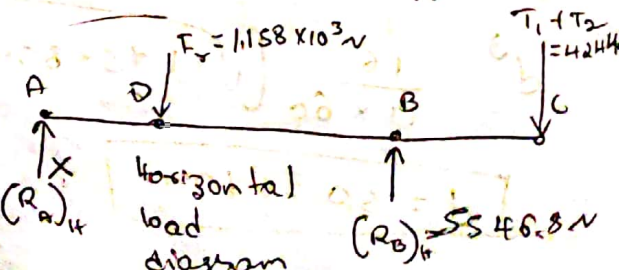 T₁ + T₂
Fᵣ = 1.158 × 10³ N
= 4244
A
D
B
C
X
(R_A)_H
Horizontal
load
diagram
(R_B)_H = 5546.8 N